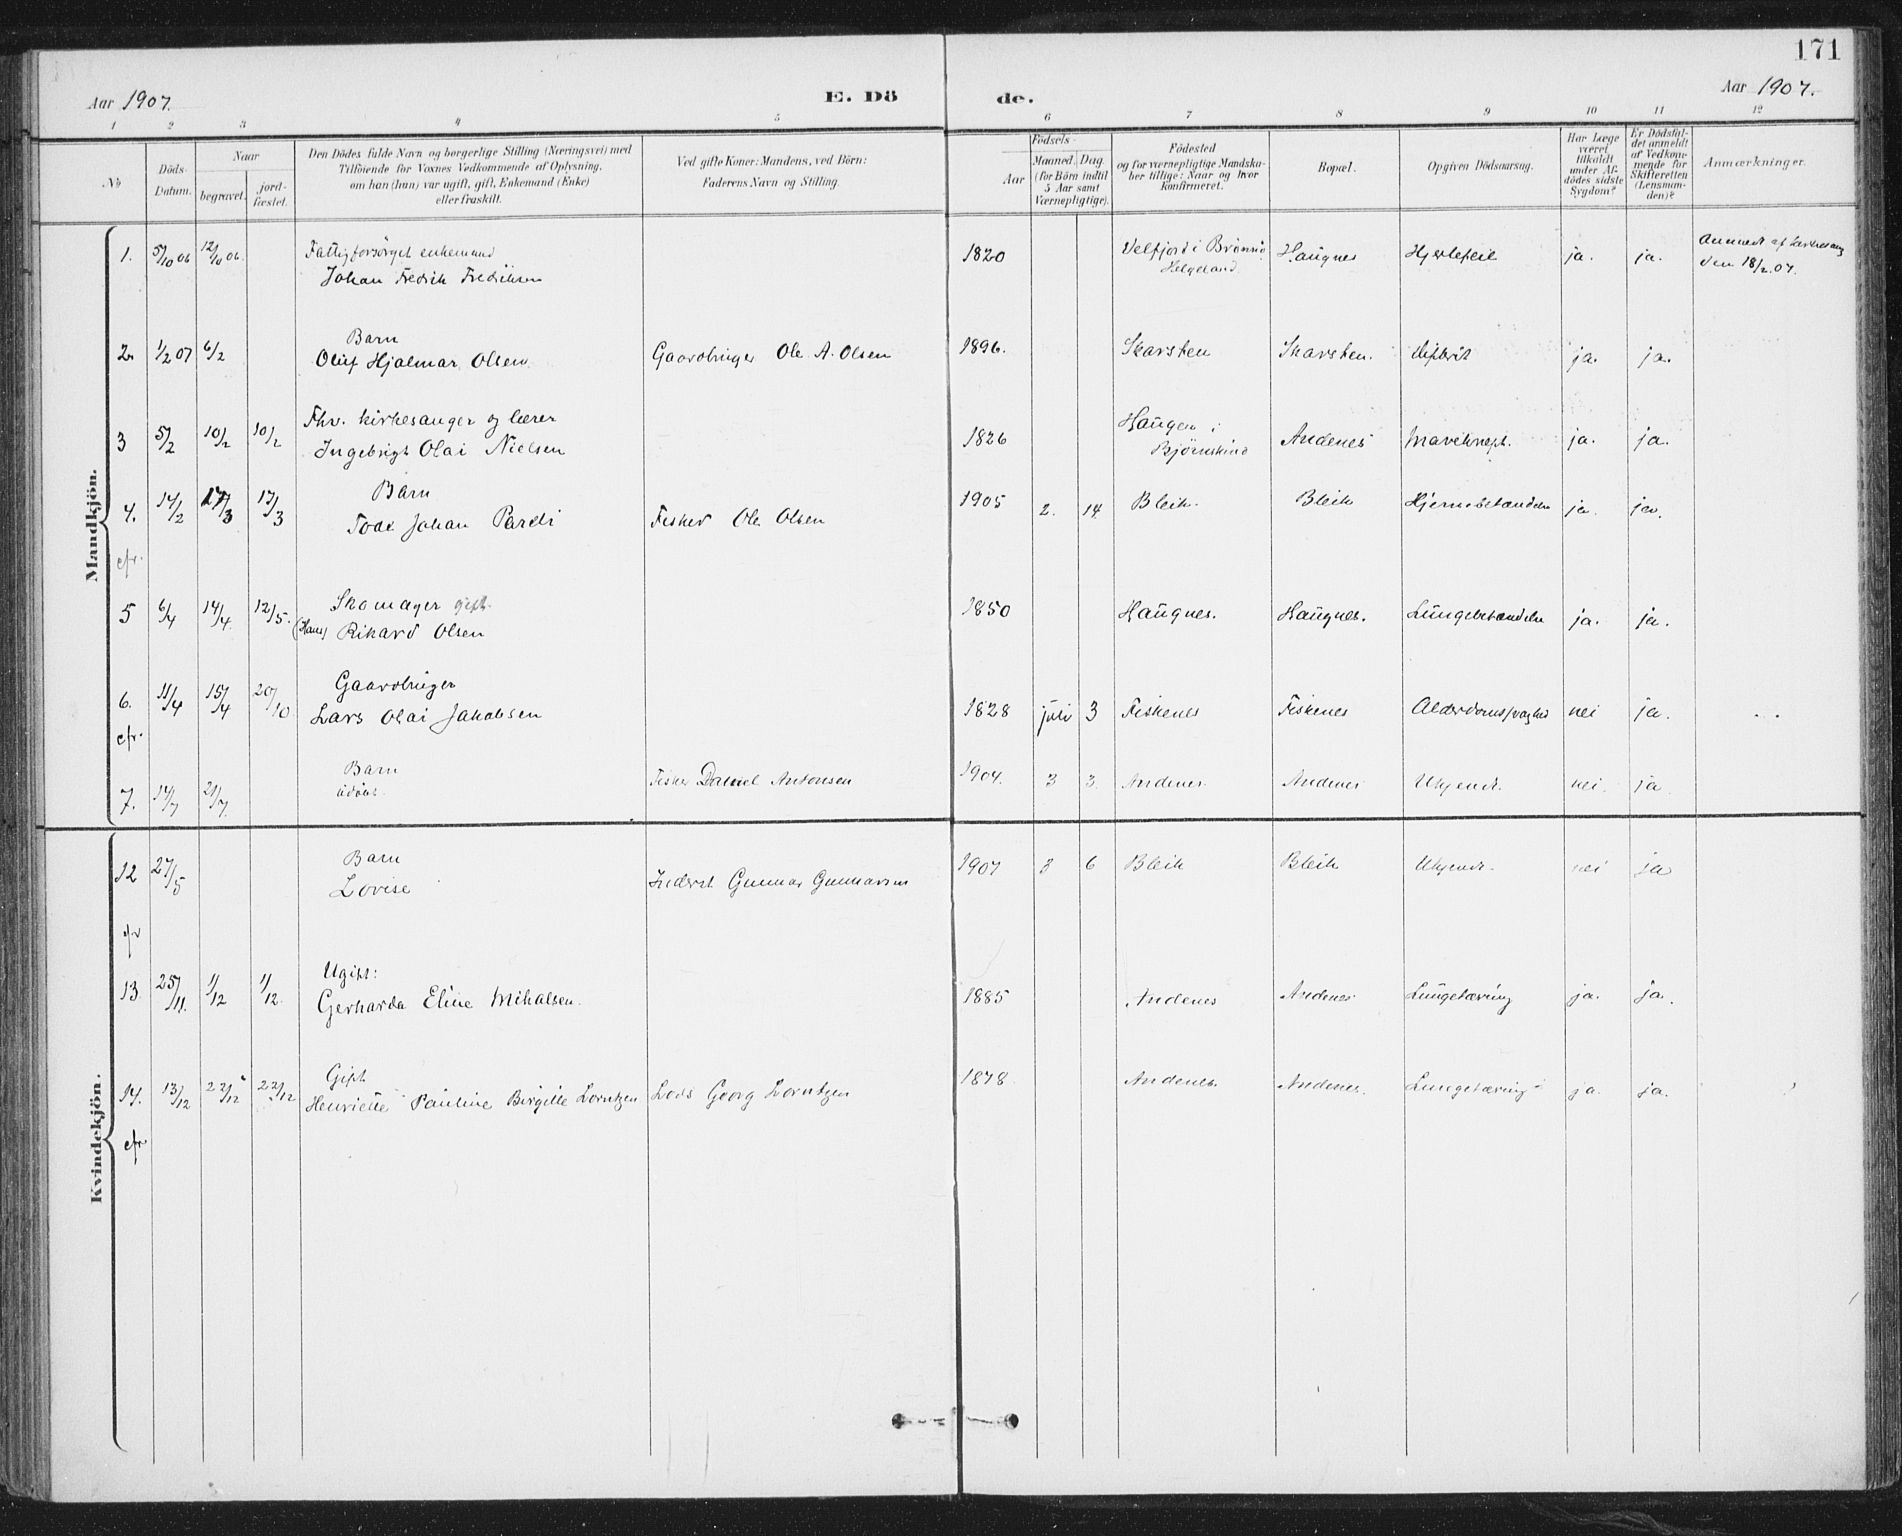 171
Aar 1907.
E. Dö
de.
Aar 1907.
1 2 3 4 5 6 7 8 9 10 11 12
No
Döds-
Datum.
Naar
begravet.
jord-
fæstet.
Den Dödes fulde Navn og borgerlige Stilling (Næringsvei) med
Tilföiende for Voxnes Vedkommende af Oplysning,
om han (hun) var ugift, gift, Enkemand (Enke)
eller fraskilt.
Ved gifte Koner: Mandens, ved Börn:
Faderens Navn og Stilling.
Födsels-
Aar
Maaned. Dag
(for Börn indtil
5 Aar samt
Værnepligtige).
Födested
og for værnepligtige Mandska-
ber tillige: Naar og hvor
Konfirmeret.
Bopæl.
Opgiven Dödsaarsag.
Har Læge
været
tilkaldt
under Af-
dödes sidste
Sygdom?
Er Dödsfal-
det anmeldt
af Vedkom-
mende for
Skifteretten
(Lensman-
den)?
Anmærkninger.
Mandkjön.
1. 5/10 06 12/10 06. Fattigforsørget enkemand
Johan Fredrik Fredriksen
1820 Velfjord i Brønnø
Helgeland. Haugnes Hjertefeil ja. ja.
den 18/2.07.
2. 1/2 07 6/2 Barn
Oluf Hjalmar Olsen. Gaardbruger Ole A. Olsen 1896. Skarsten Skarsten. difterit ja. ja.
3 5/2 10/2 10/2 Fhv. kirkesanger og lærer
Ingebrigt Olai Nielsen 1826 Haugen i
Bjørnskind Andenes ja. ja.
4. 14/2 17/3 17/3 Barn
Johan Fisker Ole Olsen 1905 2. 14 Bleik. Bleik Hjernebetændelse ja. ja.
cfr.
5 6/4 14/4. 12/5. Skomager gift.
(Hans) Rikard Olsen 1850 Haugnes. Haugnes. Lungebetændelse ja. ja.
6. 11/4 15/4 20/10 Gaardbruger
Lars Olai Jakobsen 1828 juli 3 Fiskenes Fiskenes Alderdomssvaghed nei ja.
cfr.
7. 14/7 21/7. Barn
udøbt. Fisker Daniel Antonsen 1904. 3 3. Andenes. Andenes Ukjendt. nei. ja.
Kvindekjön.
12 27/5 Barn
Lovise Inderst Gunnar Gunnarsen 1907 3 6 Bleik Bleik Ukjendt. nei ja
cfr
13. 25/11. 1/12 1/12. Ugift:
Gerharda Eline Mihalsen. 1885 Andenes Andenes Lungetæring ja. ja.
14. 13/12 22/12 22/12 Gift
Henriette Pauline Birgitte Lorntzen Lods Georg Lorntzen 1878 Andenes. Andenes. Lungetæring ja. ja.
cfr.